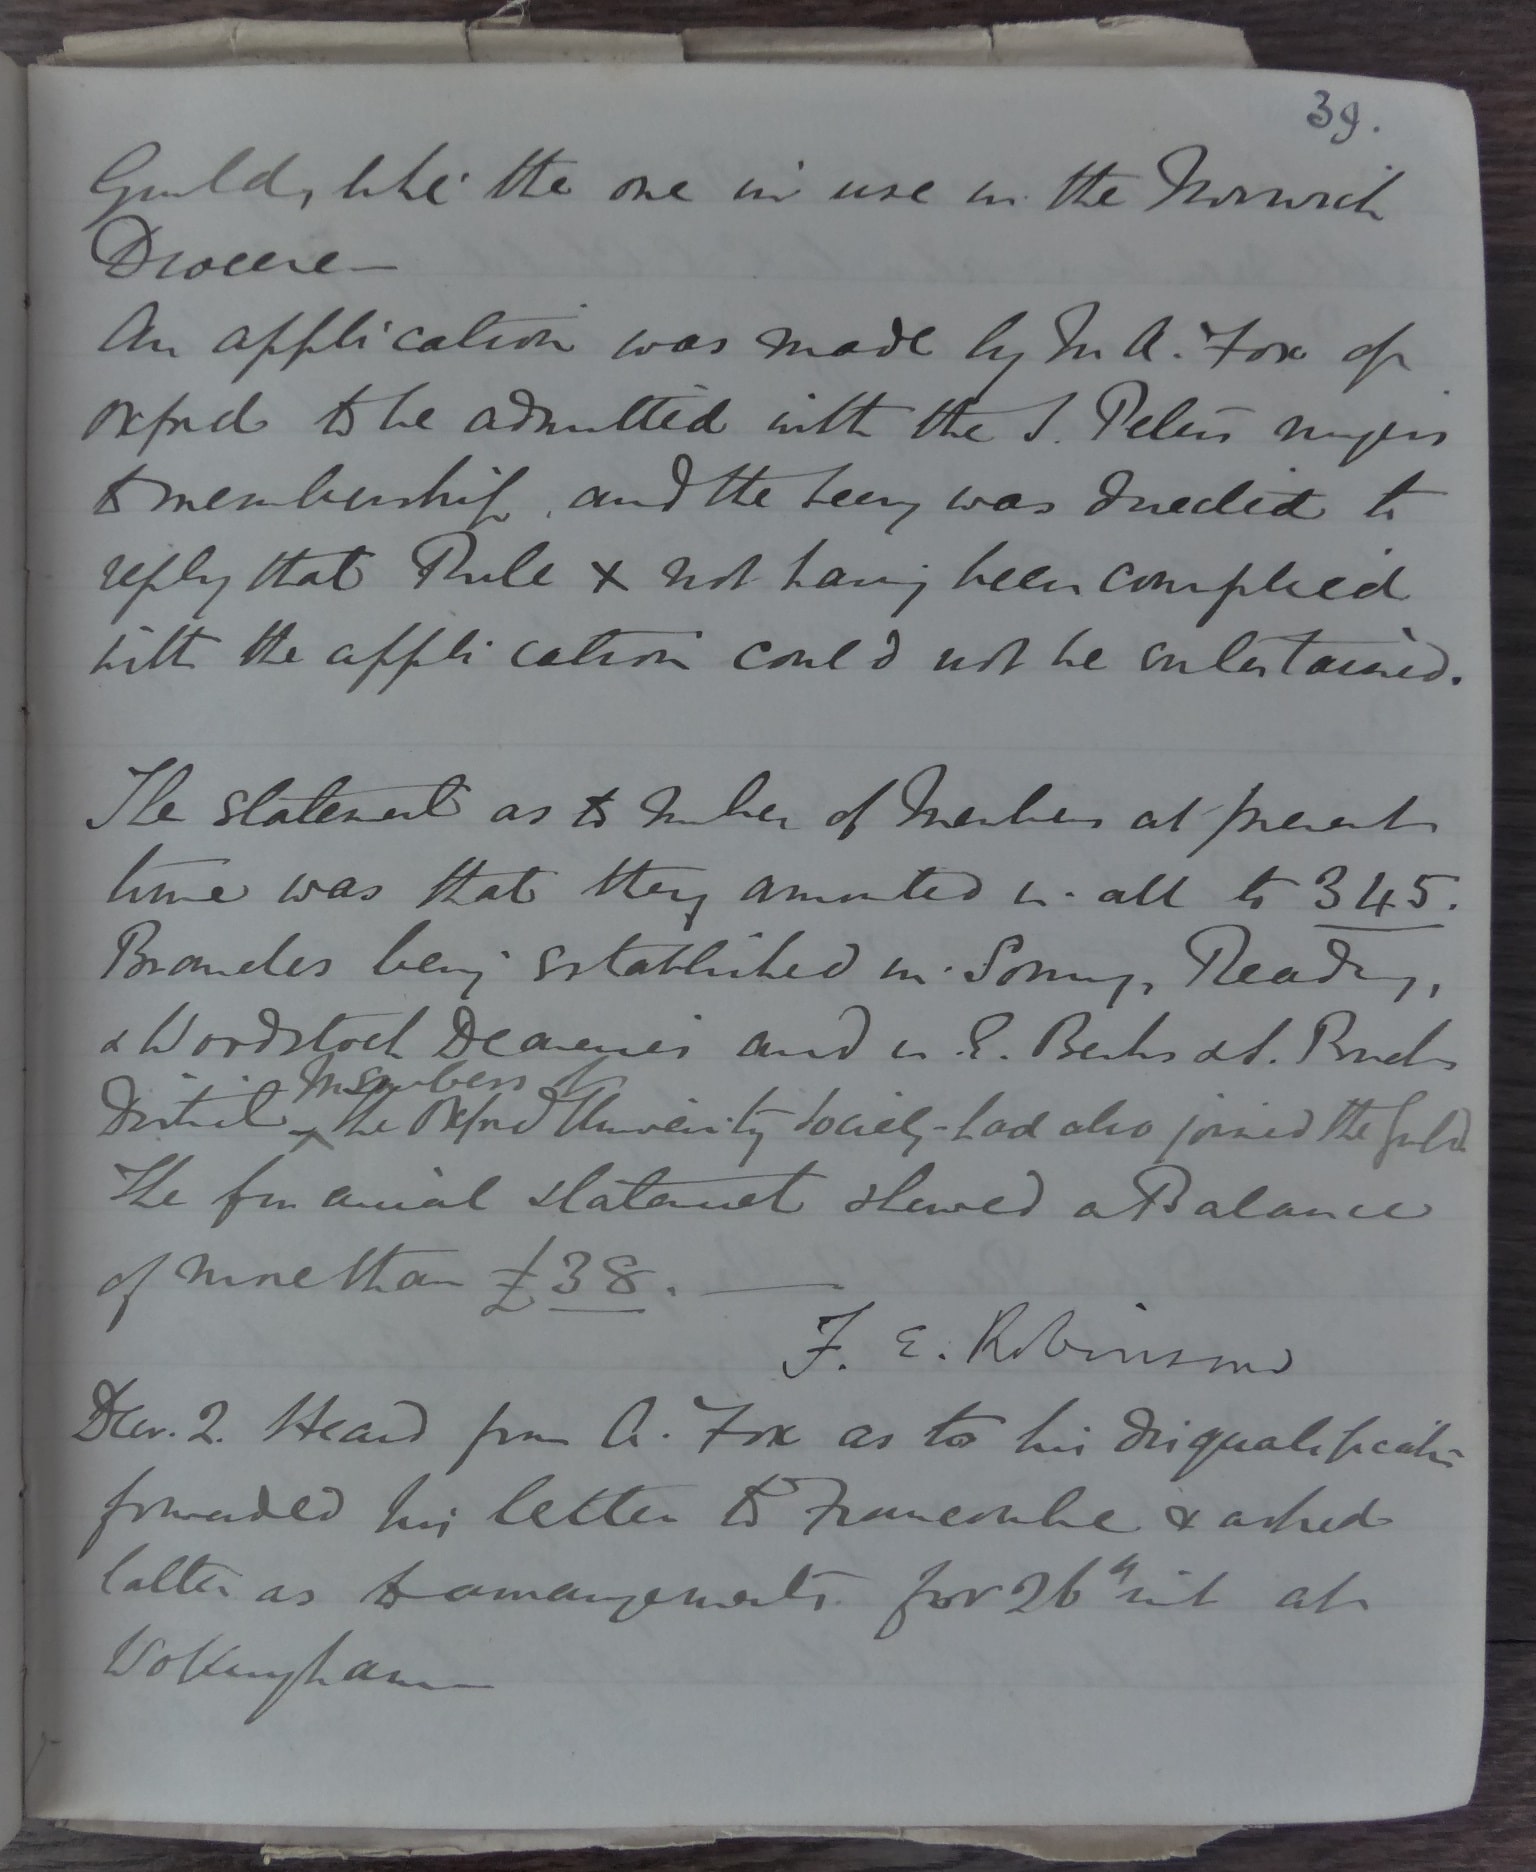 39.
Guild, like the one in use in the Norwich
Diocese—
An application was made by Mr A. Fox of
Oxford to be admitted with the S. Peter's ringers
to membership, and the Secy was directed to
reply that Rule X not having been complied
with the application could not be entertained.
The statement as to number of Members at present
time was that they amounted in all to 345.
Branches being established in Sonning, Reading,
& Woodstock Deaneries and in E. Berks & S. Bucks
Members of
District ^ the Oxford University Society had also joined the Guild
The financial statement shewed a Balance
of more than £38. —
F. E. Robinson
Decr. 2. Heard from A. Fox as to his disqualification
forwarded his letter to Francombe & asked
latter as to arrangements for 26th inst at
Wokingham—